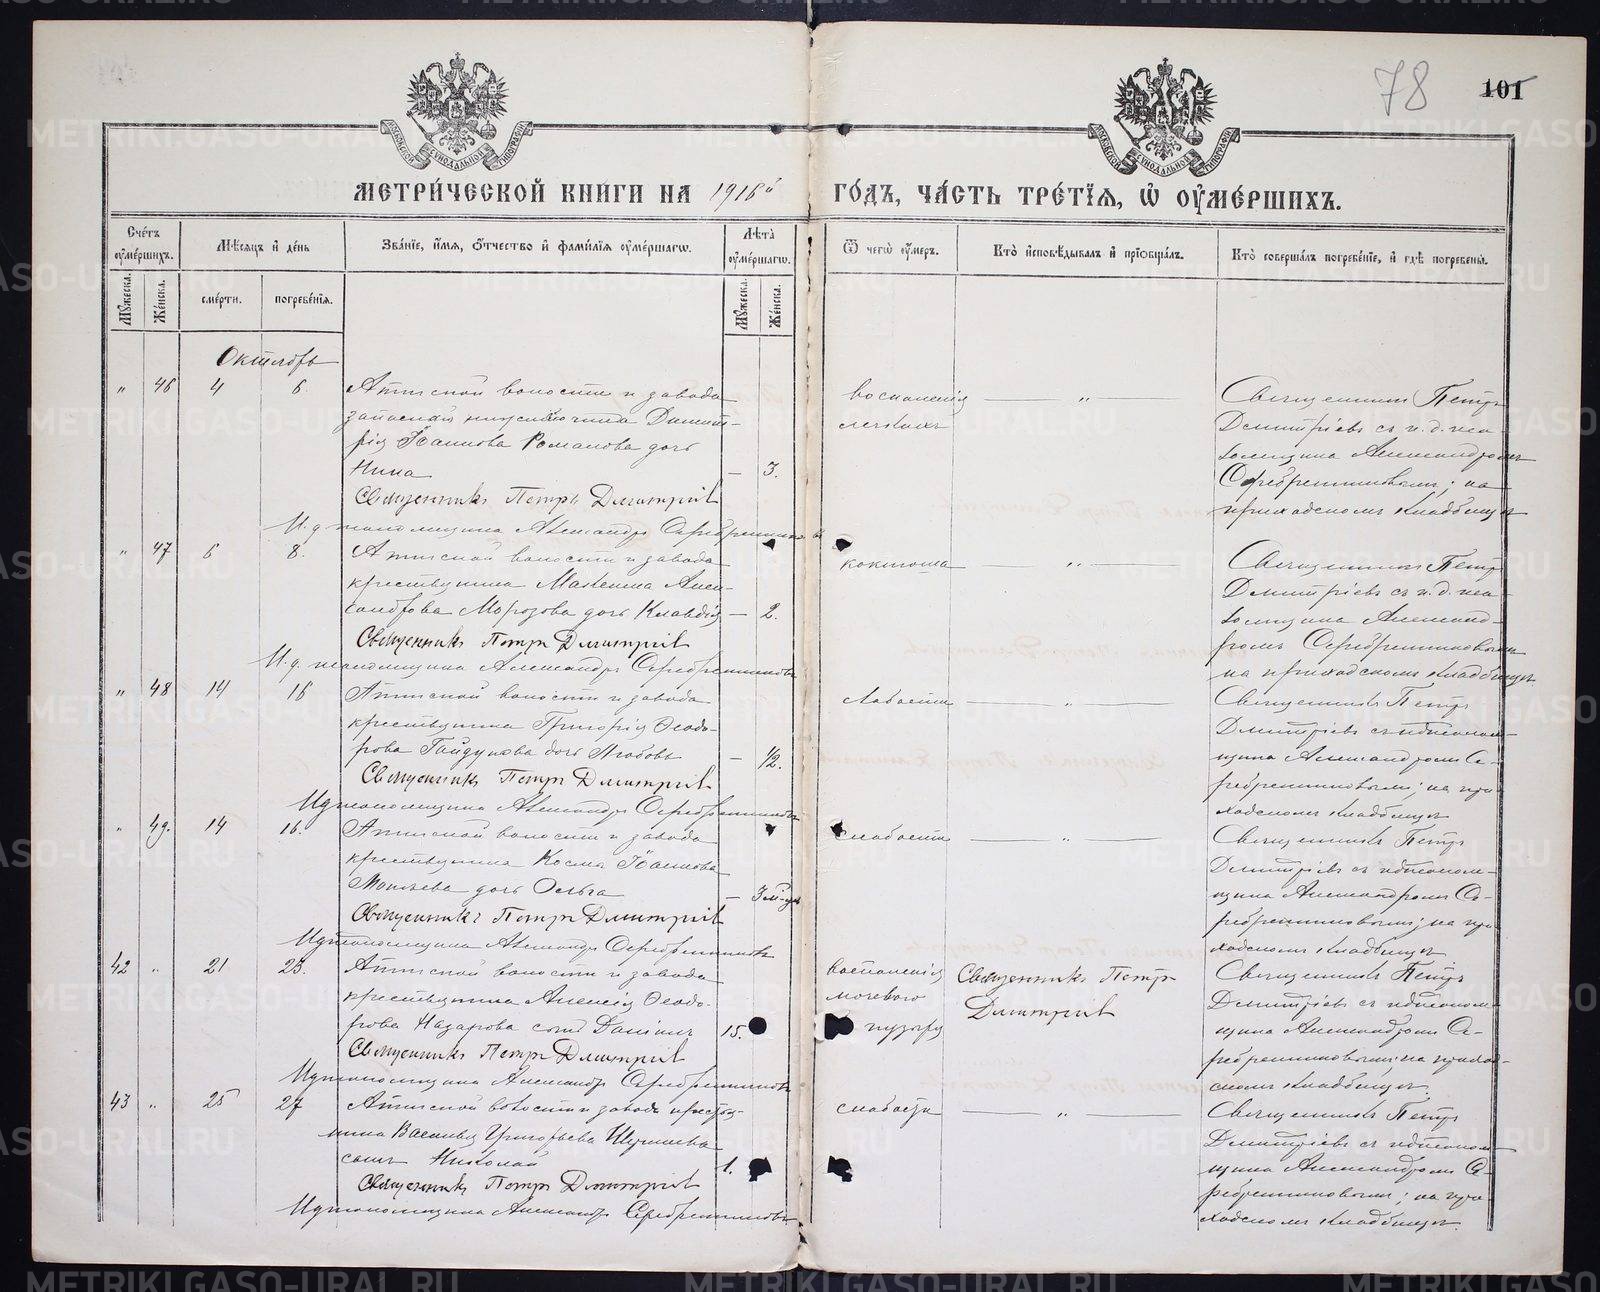 78
101
МЕТРИ́ЧЕСКОЙ КНИГИ НА 1916й ГО́ДЪ, ЧА́СТЬ ТРЕ́ТІЯ, Ѡ҆ ОУ҆МЕ́РШИХЪ.
Сче́тъ оу҆ме́ршихъ.
Мѣ́сяцъ и҆ де́нь
Зва́ніе, и҆́мя, ѻ҆́тчество и҆ фами́лія оу҆ме́ршагѡ.
Лѣ́та оу҆ме́ршагѡ.
Ѿ чегѡ̀ оу҆́меръ.
Кто̀ и҆сповѣ́дывалъ и҆ пріѻбща́лъ.
Кто̀ соверша́лъ погребе́ніе, и҆ гдѣ̀ погребены̀.
Мꙋ́жеска.
Же́нска.
сме́рти.
погребе́нія.
Мꙋ́жеска.
Же́нска.
Октябрь
" 46 4 6
Атигской волости и завода
запаснаго Димит-
рія Іоаннова Романова дочь
Нина — 3.
Священникъ Петръ Димитріевъ
И. д. псаломщика Александръ Серебренниковъ
воспаленія
легкихъ
— " —
Священникъ Петръ
Димитріевъ съ и. д. пса-
ломщика Александромъ
Серебренниковымъ; на
приходскомъ кладбищѣ
" 47 6 8.
Атигской волости и завода
крестьянина Алек-
сандрова Морозова дочь Клавдія — 2.
Священникъ Петръ Димитріевъ
И. д. псаломщика Александръ Серебренниковъ
коклюша
— " —
Священникъ Петръ
Димитріевъ съ и. д. пса-
ломщика Александ-
ромъ Серебренниковымъ
на приходскомъ кладбищѣ
" 48 14 16
Атигской волости и завода
крестьянина Григорія Ѳеодо-
рова Гайдукова дочь Любовь — 1/2.
Священникъ Петръ Димитріевъ
И д псаломщика Александръ Серебренниковъ
слабости
— " —
Священникъ Петръ
Димитріевъ съ идпсалом-
щика Александромъ Се-
ребренниковымъ; на при-
ходскомъ кладбищѣ
" 49. 14 16.
Атигской волости и завода
крестьянина Космы Іоаннова
дочь Ольга — 3 м-ца
Священникъ Петръ Димитріевъ
И д псаломщика Александръ Серебренниковъ
слабости
— " —
Священникъ Петръ
Димитріевъ съ идпсалом-
щика Александромъ Се-
ребренниковымъ; на при-
ходскомъ кладбищѣ
42 " 21 23.
Атигской волости и завода
крестьянина Алексія Ѳеодо-
рова Назарова сынъ Даніилъ 15.
Священникъ Петръ Димитріевъ
И д псаломщика Александръ Серебренниковъ
воспаленія
мочевого
пузыря
Священникъ Петръ
Димитріевъ
Священникъ Петръ
Димитріевъ съ идпсалом-
щика Александромъ Се-
ребренниковымъ; на приход-
скомъ кладбищѣ.
43 " 25 27
Атигской волости и завода крестья-
нина Василія Григорьева
сынъ Николай 1.
Священникъ Петръ Димитріевъ
И д псаломщика Александръ Серебренниковъ
слабости
— " —
Священникъ Петръ
Димитріевъ съ идпсалом-
щика Александромъ Се-
ребренниковымъ; на при-
ходскомъ кладбищѣ.
METRIKI.GASO-URAL.RU